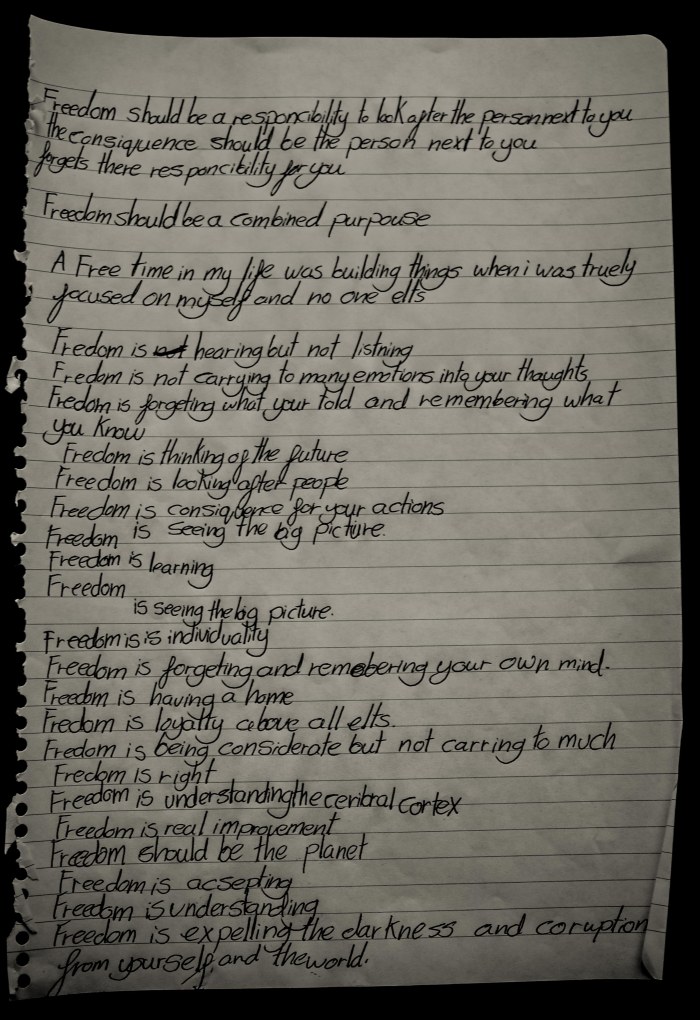 Freedom should be a responcibility to look after the person next to you
the consiquence should be the person next to you
forgets there responcibility for you
Freedom should be a combined purpouse
A Free time in my life was building things when i was truely
focused on myself and no one ells
Fredom is not hearing but not listning
Fredom is not carrying to many emotions into your thoughts
Fredom is forgeting what your told and remembering what
you know
Fredom is thinking of the future
Freedom is looking after people
Freedom is consiquence for your actions
Freedom is seeing the big picture.
Freedom is learning
Freedom
is seeing the big picture.
Freedom is is individuality
Freedom is forgeting and remebering your own mind.
Freedom is having a home
Fredom is loyalty above all elts.
Fredom is being considerate but not carring to much
Fredom is right
Freedom is understanding the ceribral cortex
Freedom is real improvement
Freedom should be the planet
Freedom is acsepting
Freedom is understanding
Freedom is expelling the darkness and coruption
from yourself, and the world.